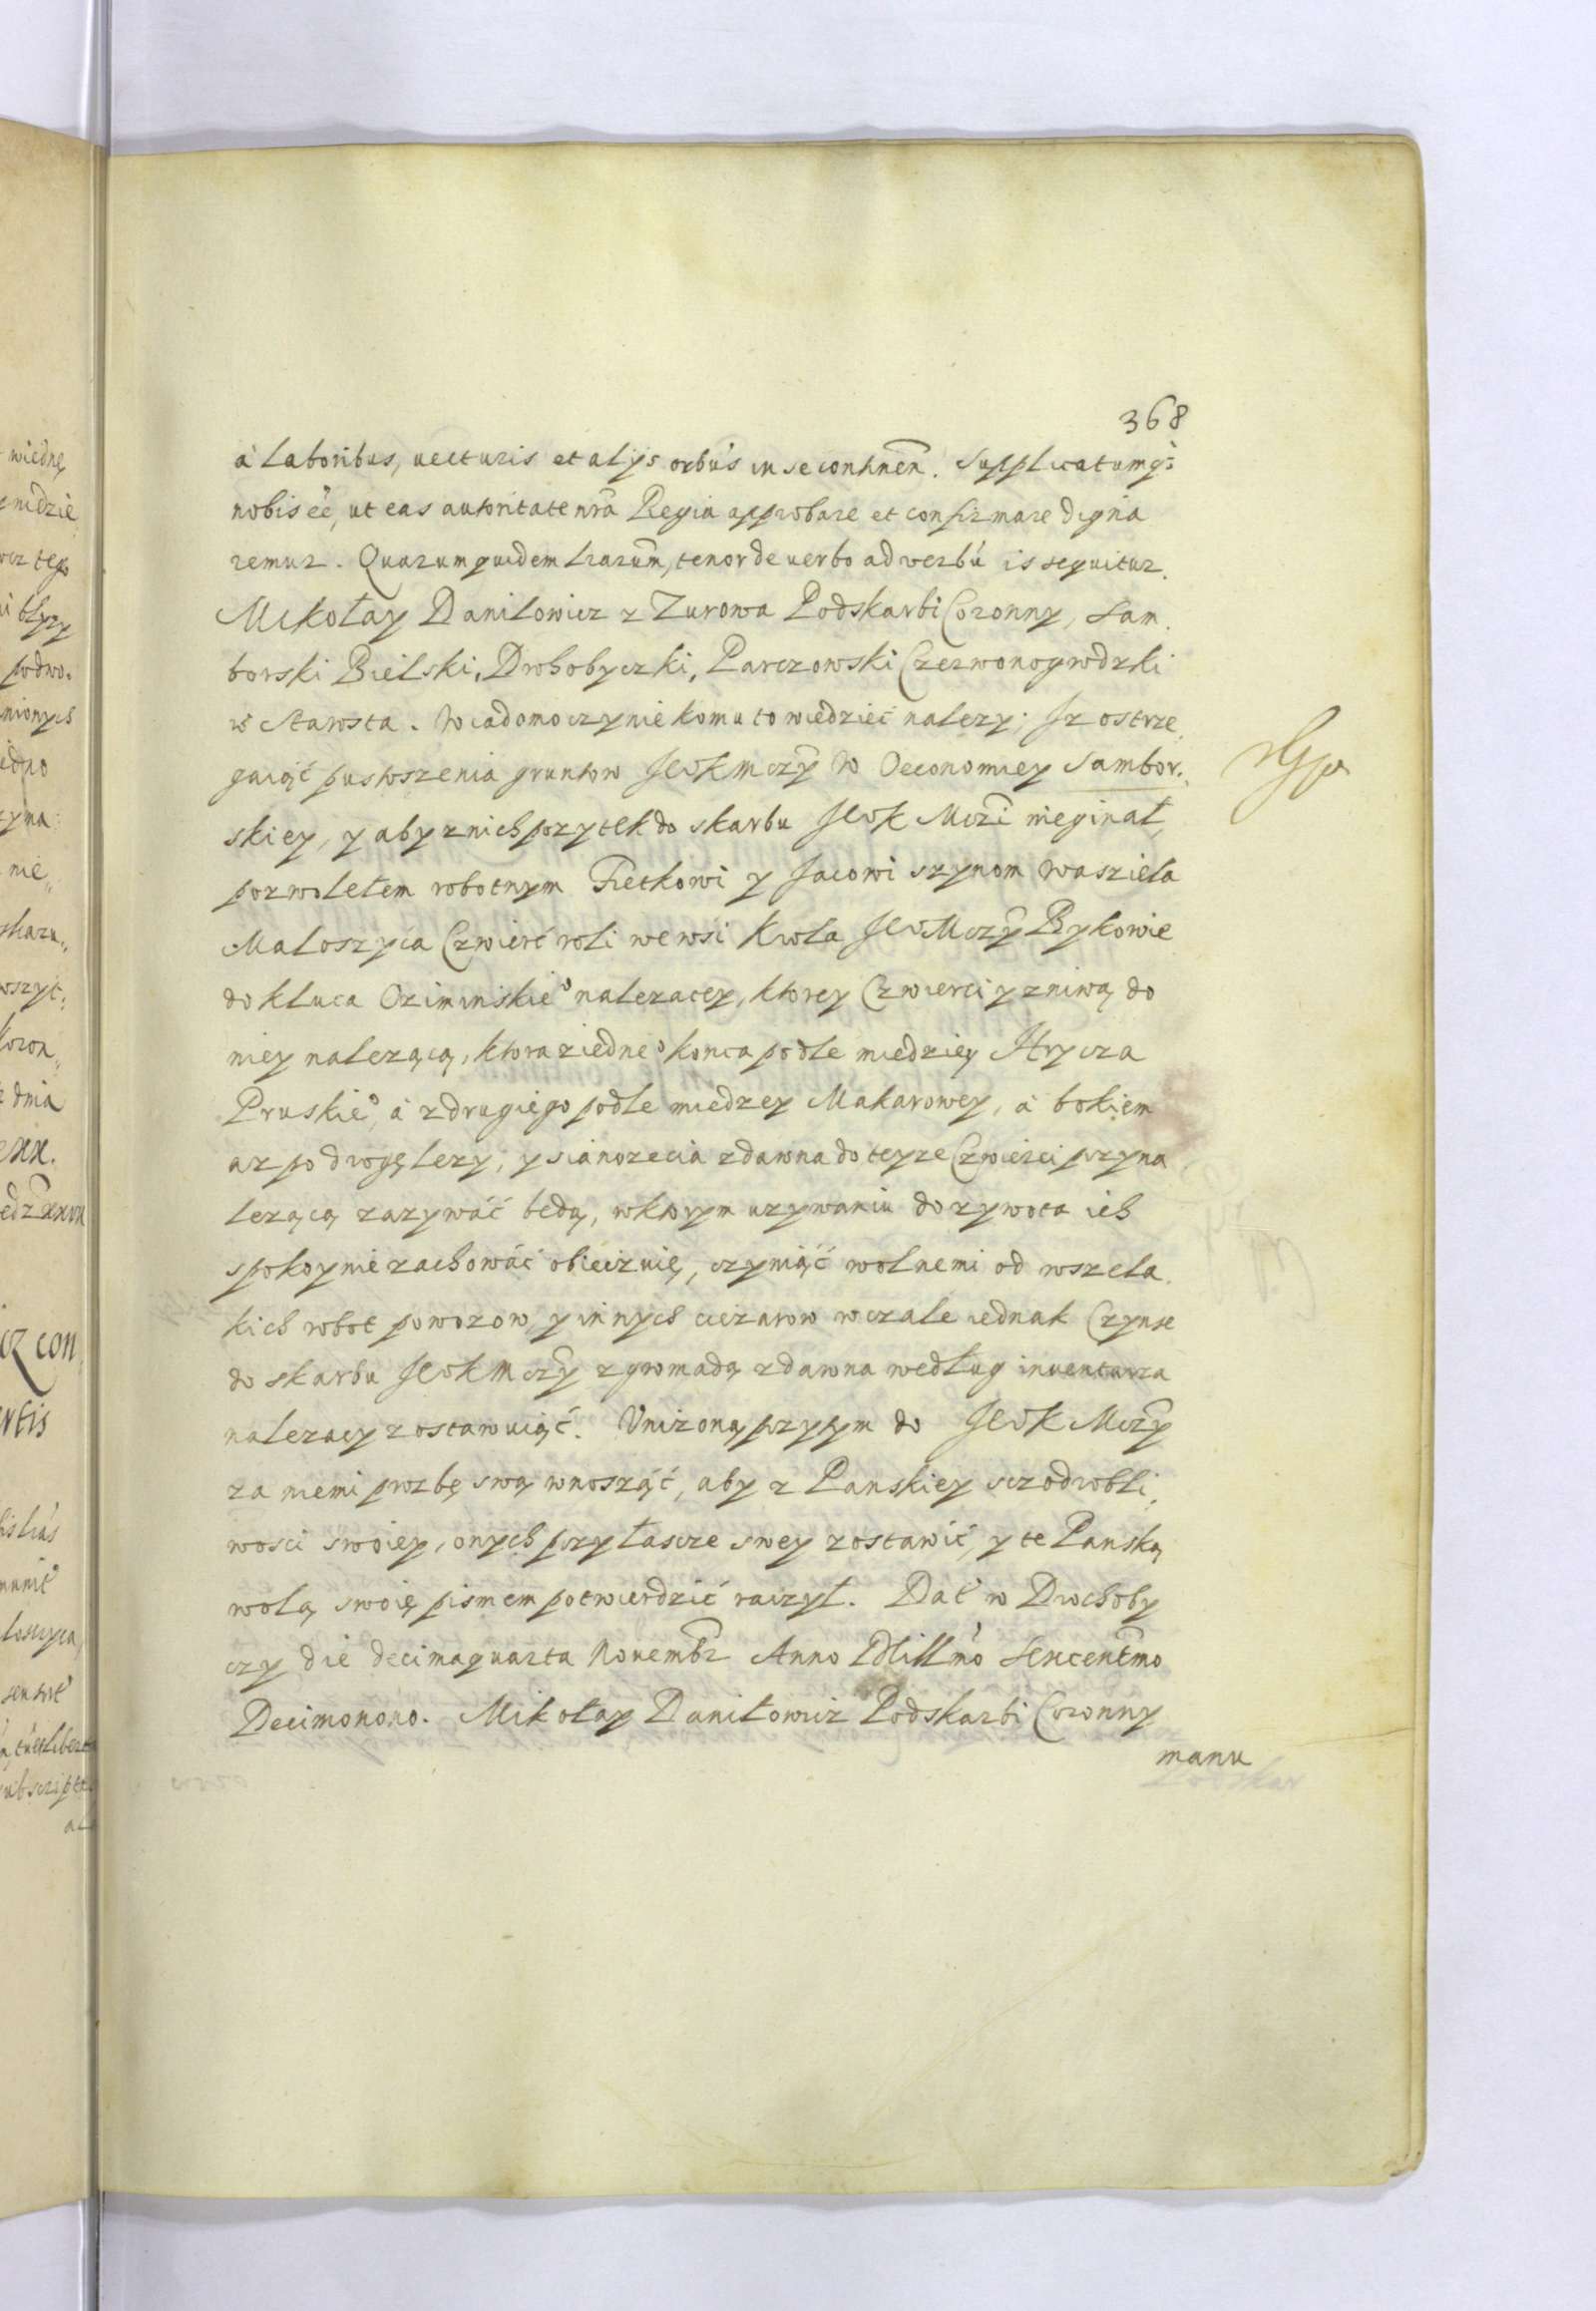 368
à laboribus, uecturis et alijs orbùs in se continen̄. Supplicatumq̀;
nobis eē, ut eas autoritate nrā Regia approbare et confirmare digna
remur. Quarum quidem lrarum̄, tenor de uerbo ad verbū is sequitur.
Mikołay Daniłowicz z Zurowa Podskarbi Coronny, Sam.
borski Bielski, Drohobyczki, Parczowski Czerwonogrodzki
Starosta. Wiadomo czynie komu to wiedzieć nalezy; Jz ostrze,
gaiąć pustoszenia gruntow JeoKmczy̅ w Oeconomiey Sambor.
skiey, y aby z nich pozytek do skarbu JeoK Mczi̅ nieginał,
pozwolełem robotnym Fietkowi y Jacowi szynom Wasziela
Maloszyca Czwierć roli we wsi Krola JeoMczy̅ Bykowie
do kluca Oziminskieº nalezacey, ktorey Czwierci y zniwą do
niey nalezącą, ktora z iedneº konca podle miedzięy Hrycza
Pruskieº, à z drugiego podle miedzey Makarowey, à bokiem
az po drogę lezy, y sianozecia zdawna do teyze Czwierci przyna
lezącą zazywáć będą, w ktorym uzywaniu do zywota ich
spokoynie zachowáć obiecznię, czyniąć wolnemi od wszela.
kich robot powozow, y innych ciezarow wczale iednak Czynse
do skarbu JeoKmczy̅ z gromadą zdawna według inuentarza
nalezacy zostawuiąć. Vnizoną przytym do JeoK Mczy̅
za niemi prozbę swą wnosząć, aby z Panskiey sczodrobli,
wosci swoiey, onych przy łascze swey zostawić, y te Panską
wolą swoię pismem potwierdzić raczył. Dat̄ w Drohoby
czy die decima quarta Nouembr̅ Anno Mill̄mo Sexcent̄mo
Decimonono. Mikołay Daniłowicz Podskarbi Coronny
manu